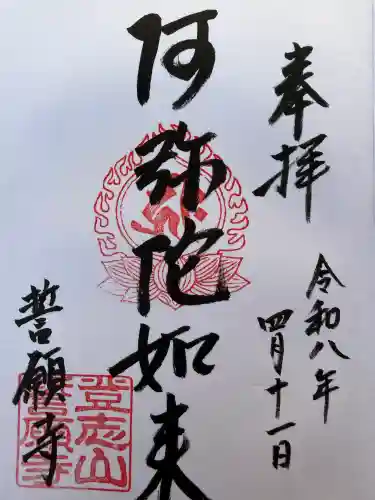 奉拝
令和八年
四月十一日
阿弥陀如来
誓願寺
登志山
誓願寺